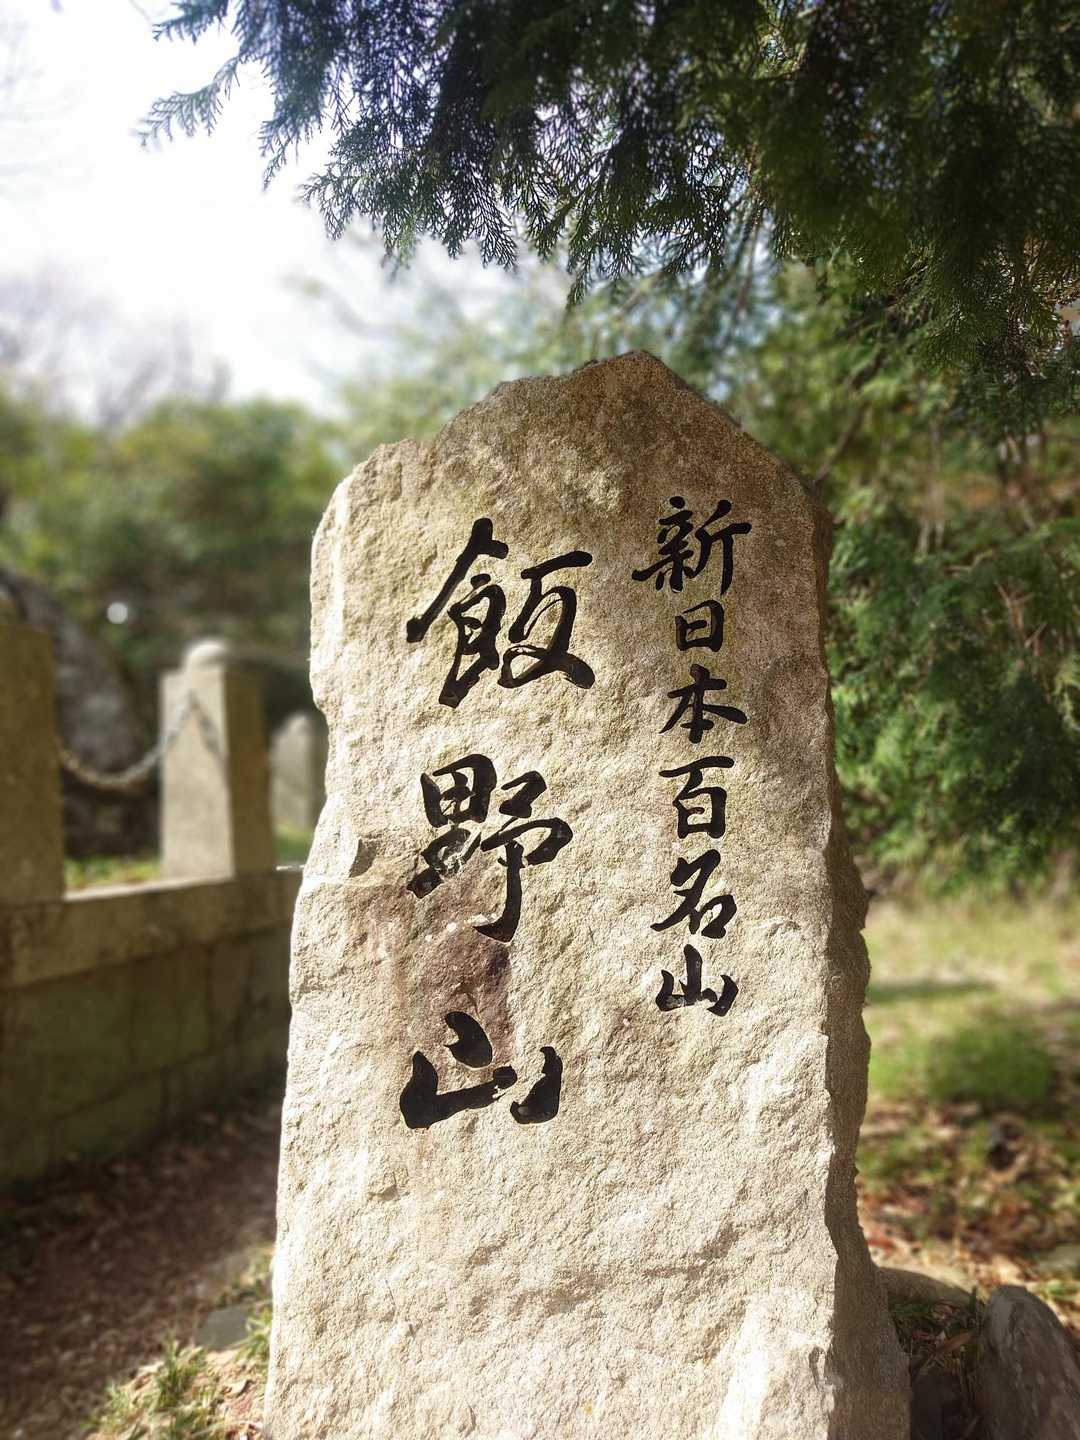 新日本百名山
飯野山